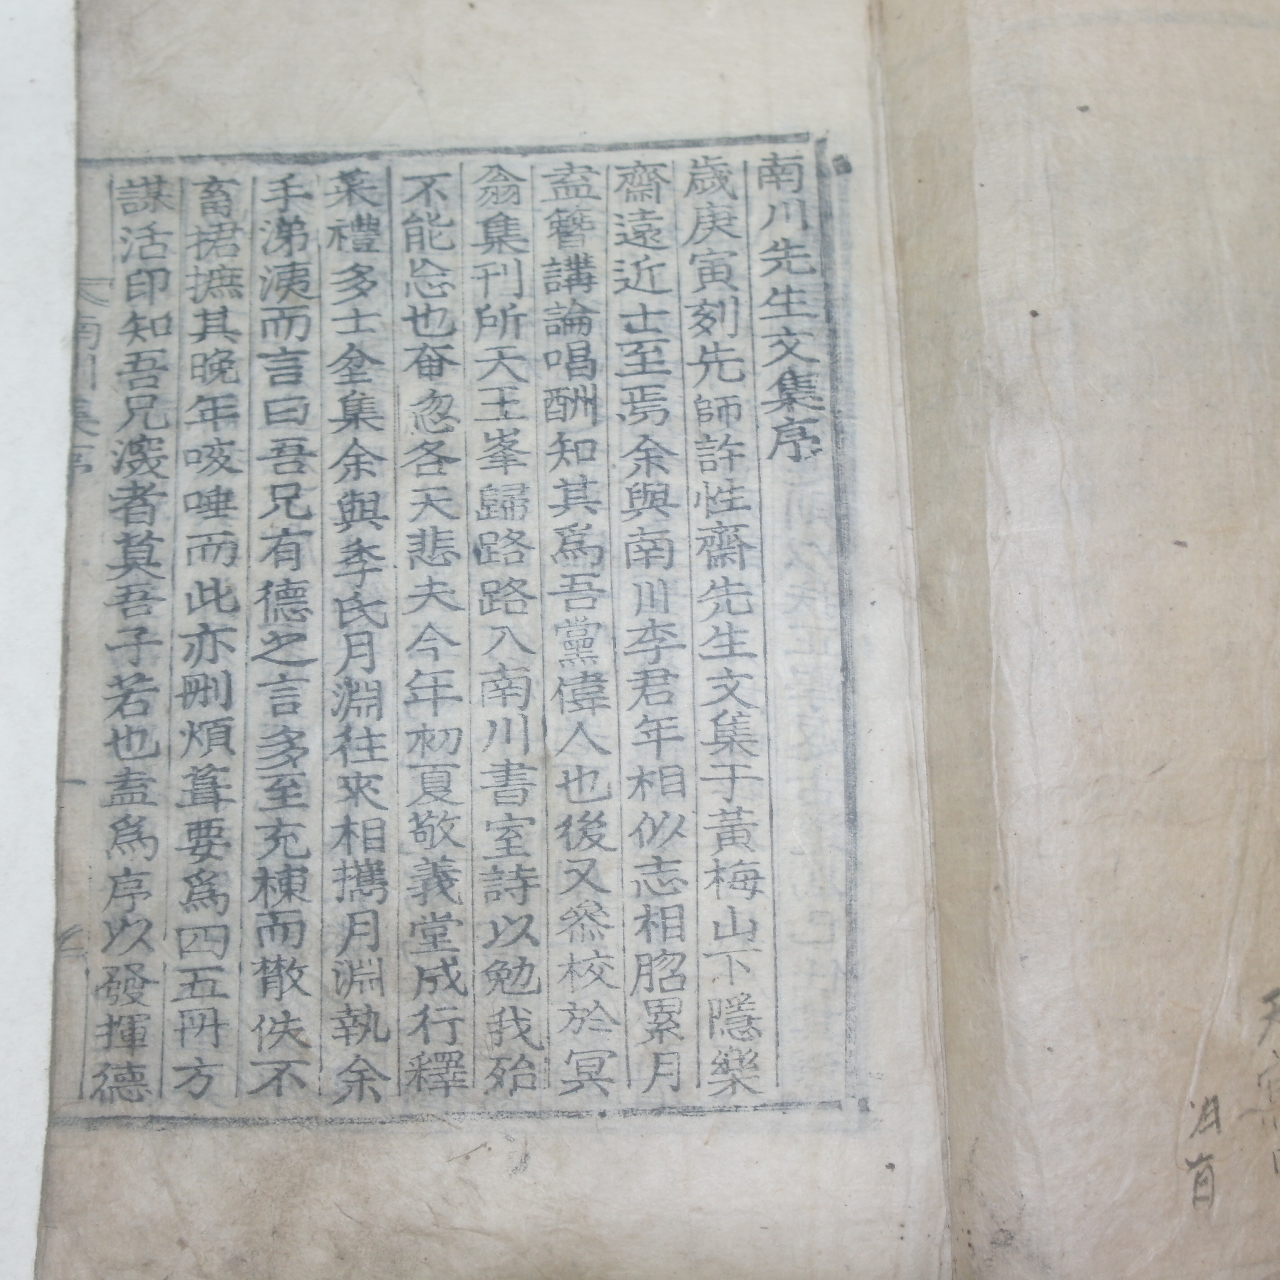 南川先生文集序
歲庚寅刻先師許性齋先生文集于黃梅山下隱樂
齋遠近士至焉余與南川李君年相似志相照累月
盍簪講論唱酬知其爲吾黨偉人也後又叅校於冥
翁集刊所天王峯歸路路入南川書室詩以勉我殆
不能忘也奄忽各天悲夫今年初夏敬義堂成行釋
菜禮多士坌集余與李氏月淵往來相携月淵執余
手涕洟而言曰吾兄有德之言多至充棟而散佚不
畜捃摭其晩年咳唾而此亦刪煩葺要爲四五冊方
謀活印知吾兄深者莫吾子若也盍爲序以發揮德
南川集序
一